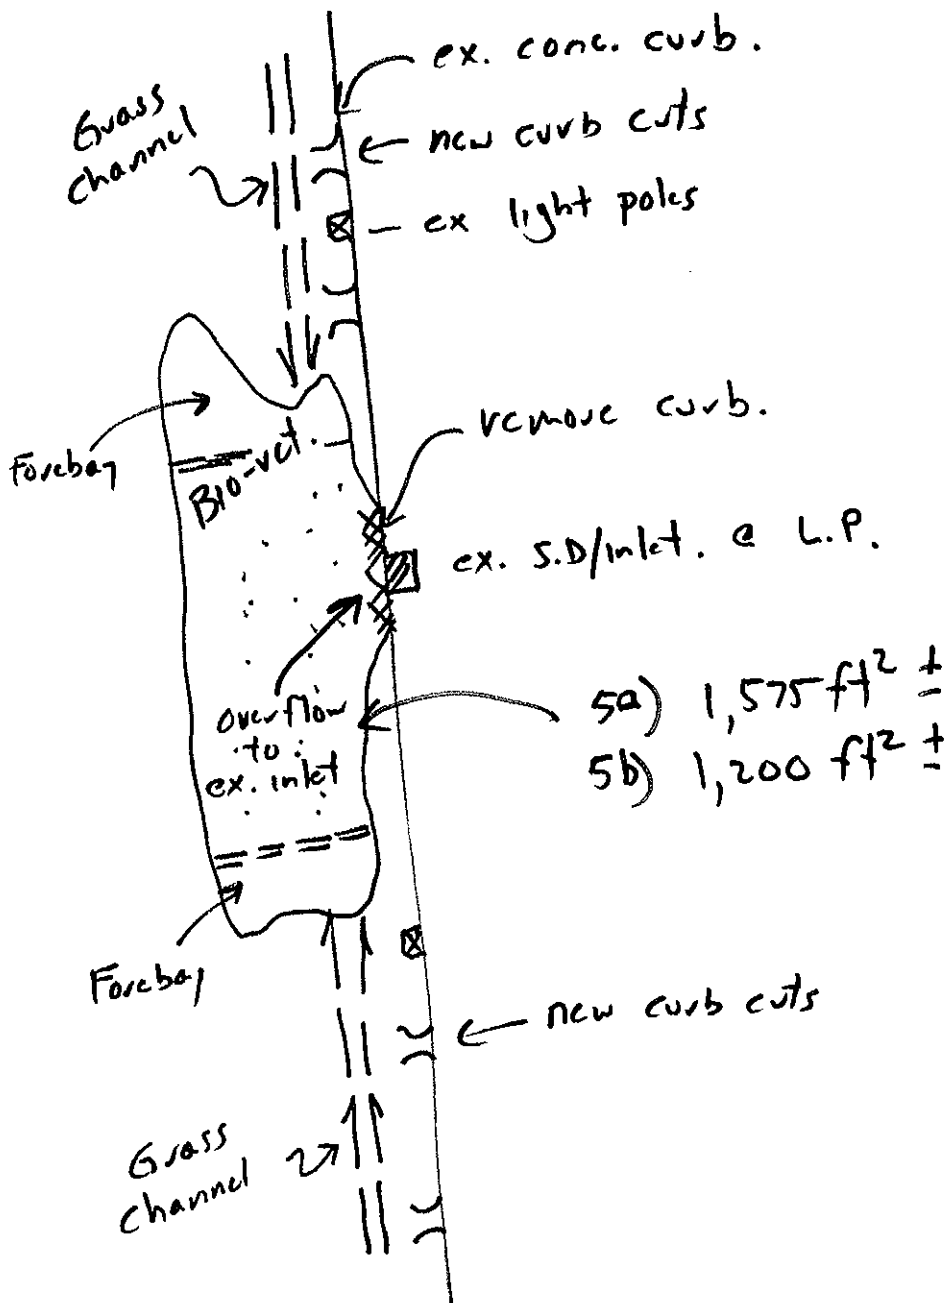 ex. conc. curb.
Grass
channel
new curb cuts
ex light poles
remove curb.
Forebay
Bio-ret.
ex. S.D/inlet. @ L.P.
overflow
to
ex. inlet
5a) 1,575 ft² ±
5b) 1,200 ft² ±
Forebay
new curb cuts
Grass
channel